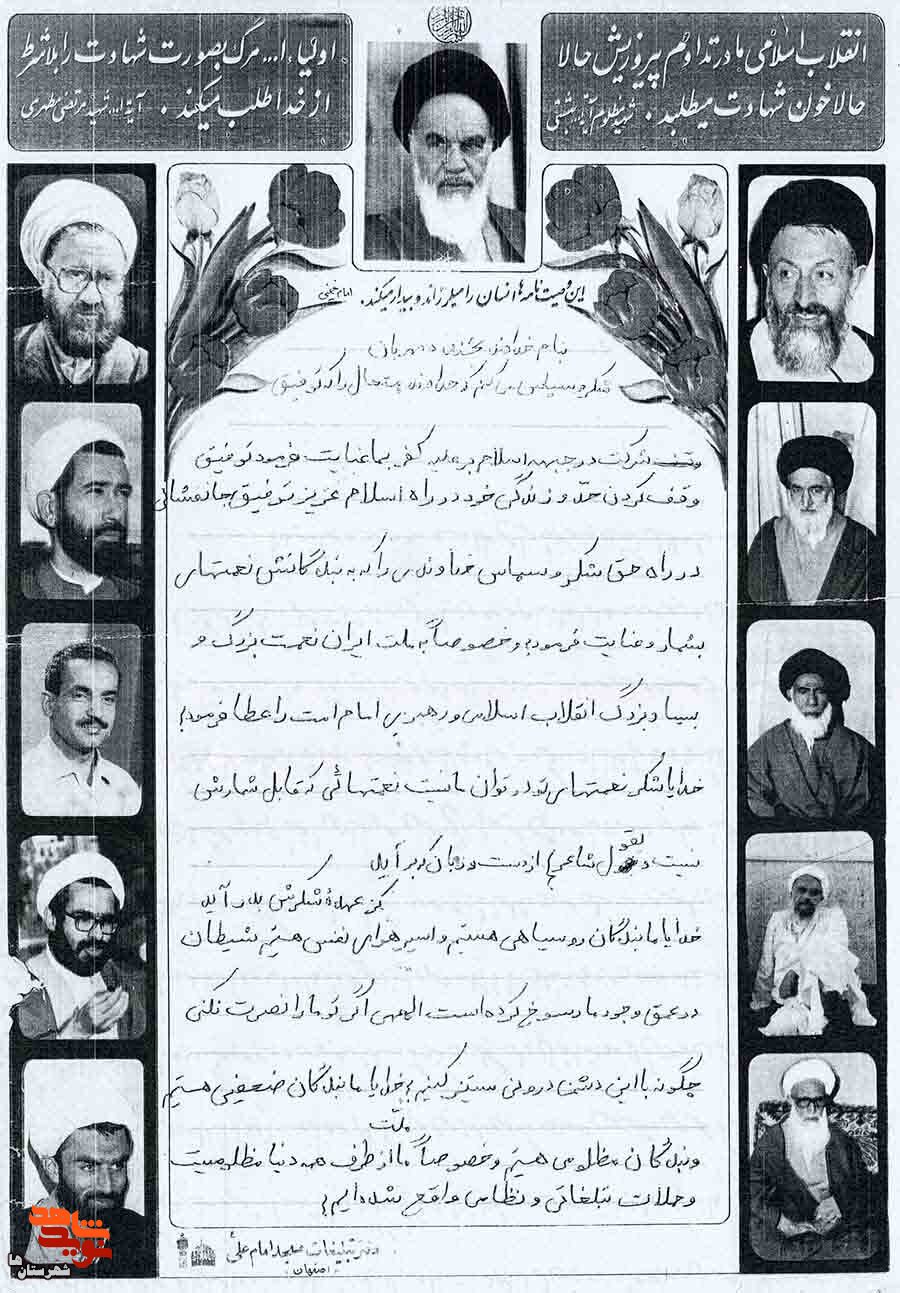 انقلاب اسلامی ما در تداوم پیروزیش حالا
حالا خون شهادت میطلبد. شهید مظلوم آیة... بهشتی
اولیاء ا... مرگ بصورت شهادت را بلاشرط
از خدا طلب میکند. آیة ا... شهید مرتضی مطهری
این وصیت نامه ها انسان را میلرزاند و بیدار میکند. امام خمینی
بنام خداوند بخشنده و مهربان
شکر و سپاس می کنم که خداوند متعال را که توفیق
شرکت در جبهه اسلام بر علیه کفر بما عنایت فرمود توفیق
وقف کردن خود و زندگی خود در راه اسلام عزیز توفیق جانفشانی
در راه حق شکر و سپاس خداوندی را که به بندگانش نعمتهای
بیشمار عنایت فرموده و خصوصاً به ملت ایران نعمت بزرگ و
بسیار بزرگ انقلاب اسلامی و رهبری امام امت را عطا فرموده
خدایا شکر نعمتهای تو در توان ما نیست نعمتهائی که قابل شمارش
نیست و بقول شاعر از دست و زبان که برآید
کز عهدهٔ شکرش بدر آید
خدایا ما بندگان روسیاهی هستیم و اسیر هوای نفس هستیم شیطان
در عمق وجود ما رسوخ کرده است الهی اگر تو ما را نصرت نکنی
چگونه با این دشمن درونی ستیز کنیم خدایا ما بندگان ضعیفی هستیم
و بندگان مظلومی هستیم و خصوصاً ما ملت از طرف همه دنیا مظلومیت
و حملات تبلیغاتی و نظامی واقع شده ایم
دفتر تبلیغات مسجد امام علی
اصفهان
نوید شاهد
شهرستان ها